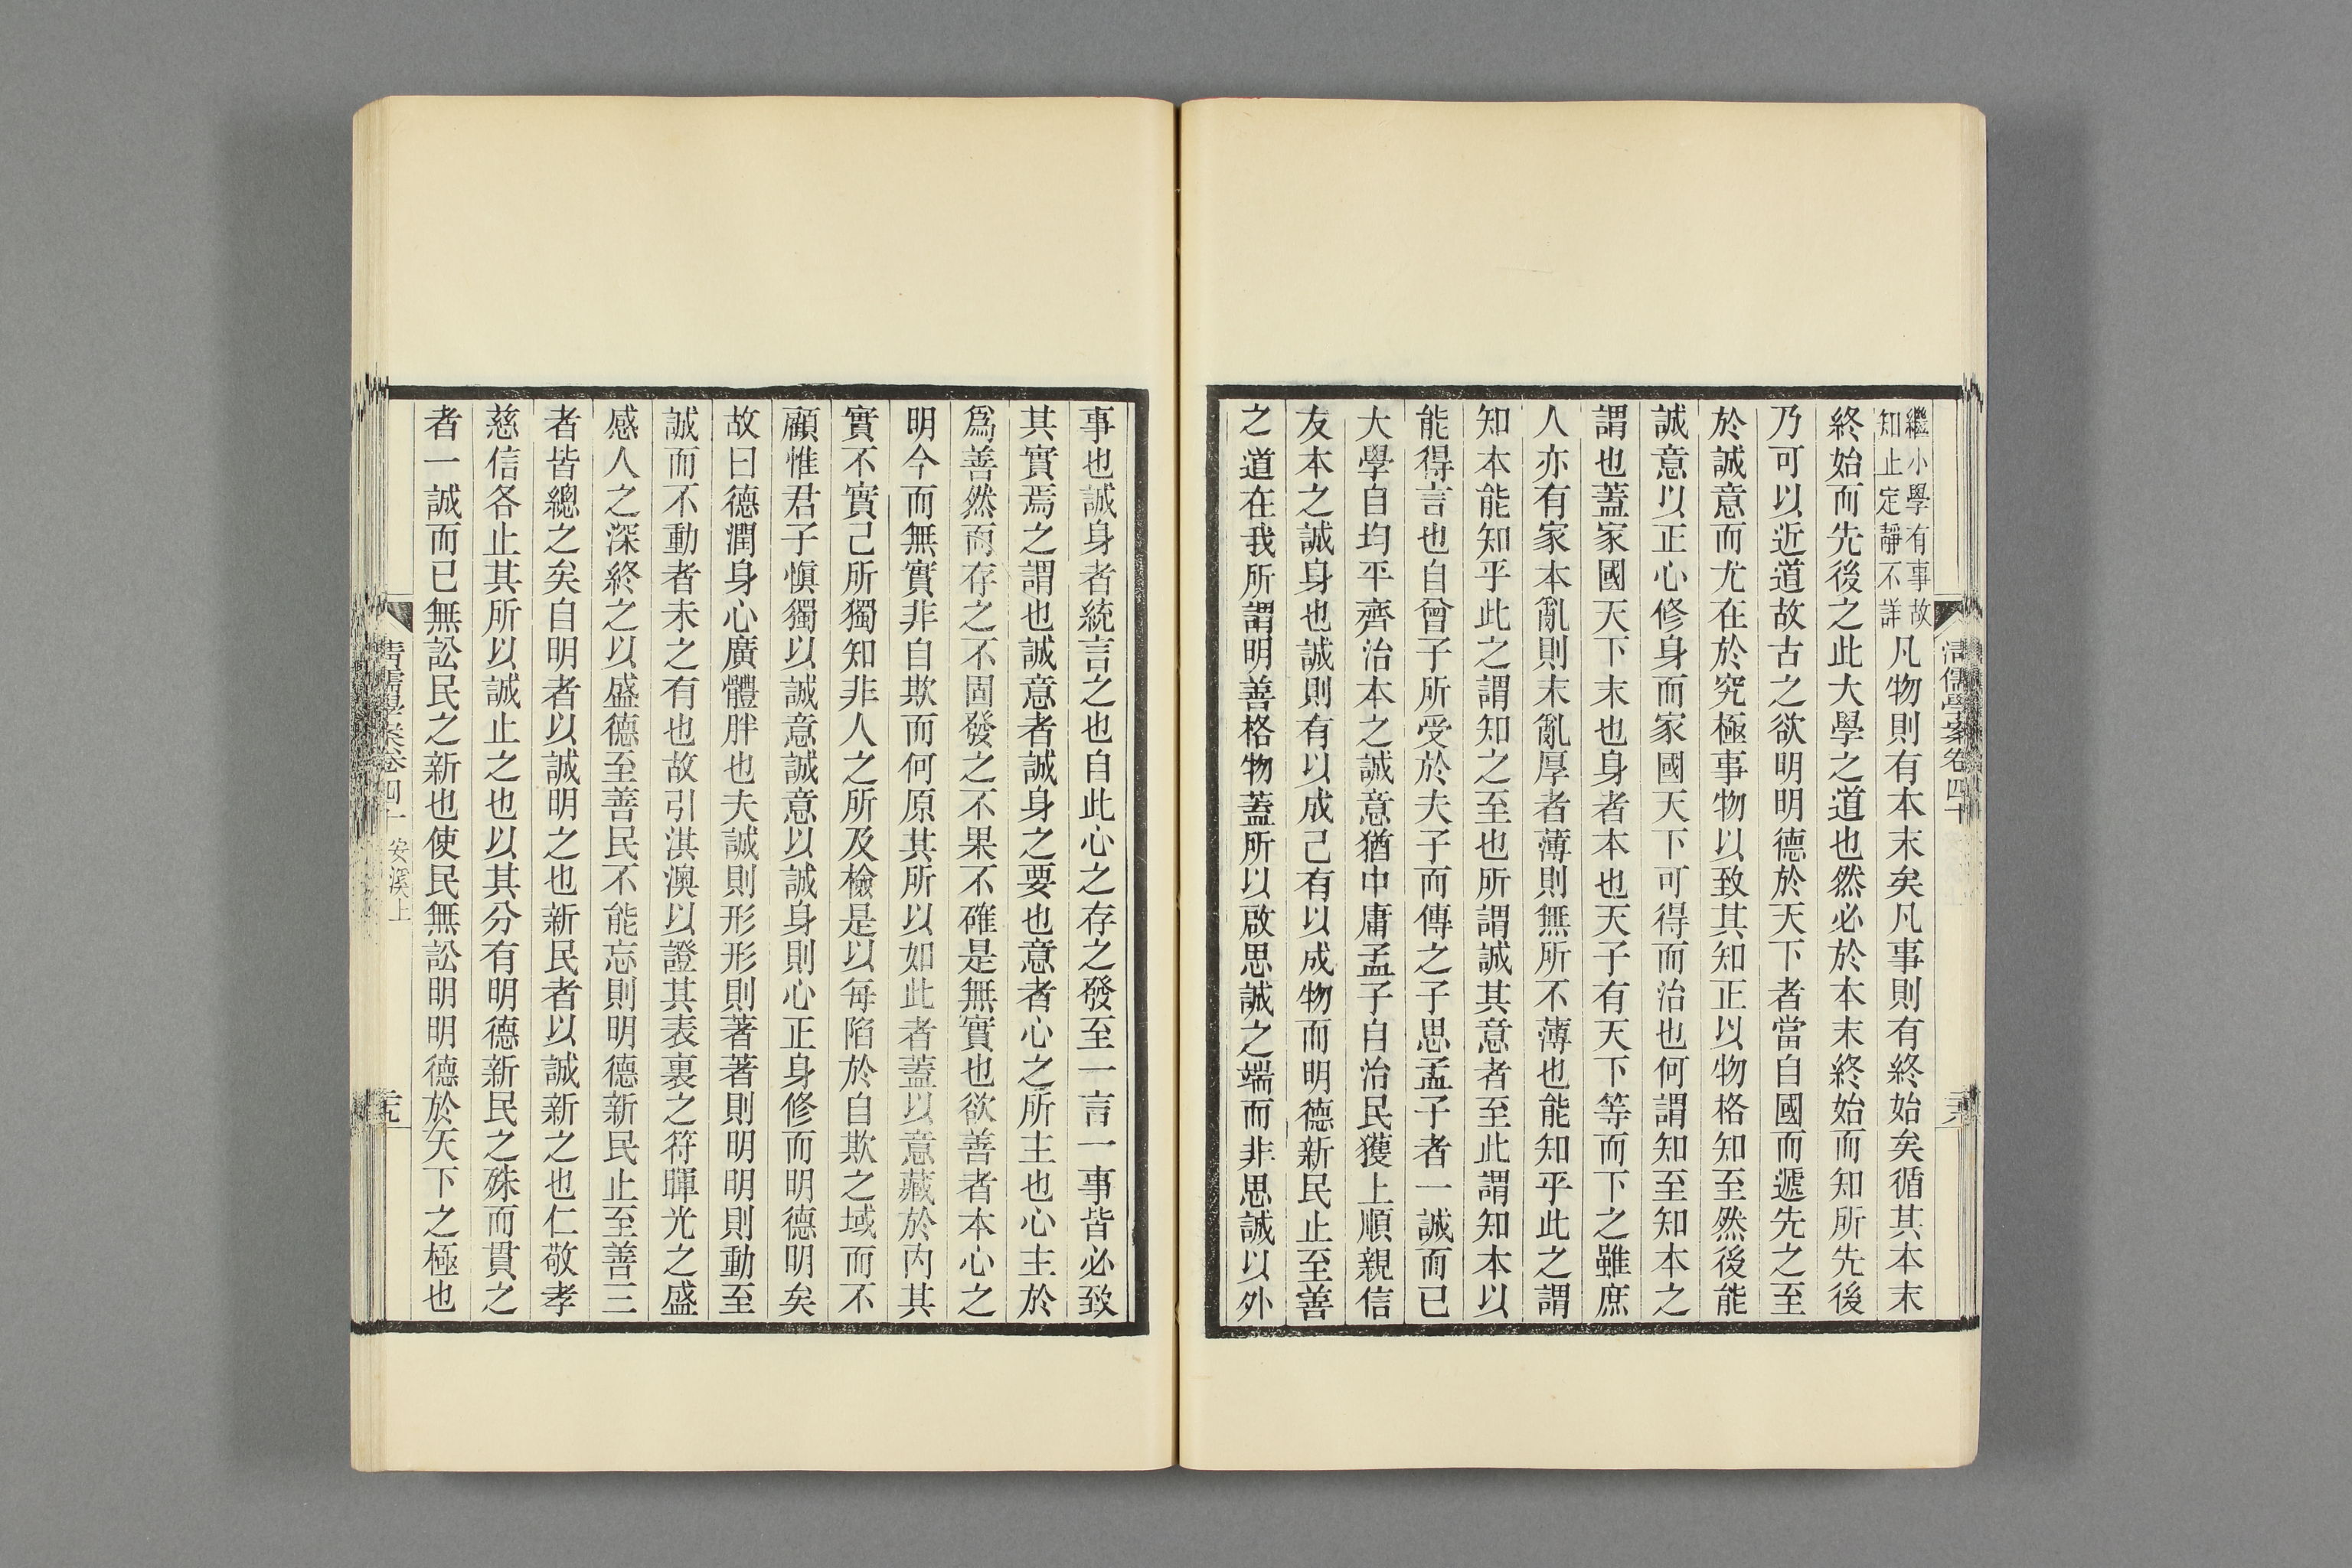 繼小學有事故
知止定靜不詳
凡物則有本末矣凡事則有終始矣循其本末
終始而先後之此大學之道也然必於本末終始而知所先後
乃可以近道故古之欲明明德於天下者當自國而遞先之至
於誠意而尤在於究極事物以致其知正以物格知至然後能
誠意以正心修身而家國天下可得而治也何謂知至知本之
謂也蓋家國天下末也身者本也天子有天下等而下之雖庶
人亦有家本亂則末亂厚者薄則無所不薄也能知乎此之謂
知本能知乎此之謂知之至也所謂誠其意者至此謂知本以
能得言也自曾子所受於夫子而傳之子思孟子者一誠而已
大學自均平齊治本之誠意猶中庸孟子自治民獲上順親信
友本之誠身也誠則有以成己有以成物而明德新民止至善
之道在我所謂明善格物蓋所以啟思誠之端而非思誠以外
清儒學案卷四十
事也誠身者統言之也自此心之存之發至一言一事皆必致
其實焉之謂也誠意者誠身之要也意者心之所主也心主於
爲善然而存之不固發之不果不確是無實也欲善者本心之
明今而無實非自欺而何原其所以如此者蓋以意藏於內其
實不實己所獨知非人之所及檢是以每陷於自欺之域而不
顧惟君子愼獨以誠意誠意以誠身則心正身修而明德明矣
故曰德潤身心廣體胖也夫誠則形形則著著則明明則動至
誠而不動者未之有也故引淇澳以證其表裏之符暉光之盛
感人之深終之以盛德至善民不能忘則明德新民止至善三
者皆總之矣自明者以誠明之也新民者以誠新之也仁敬孝
慈信各止其所以誠止之也以其分有明德新民之殊而貫之
者一誠而已無訟民之新也使民無訟明明德於天下之極也
清儒學案卷四十 安溪上